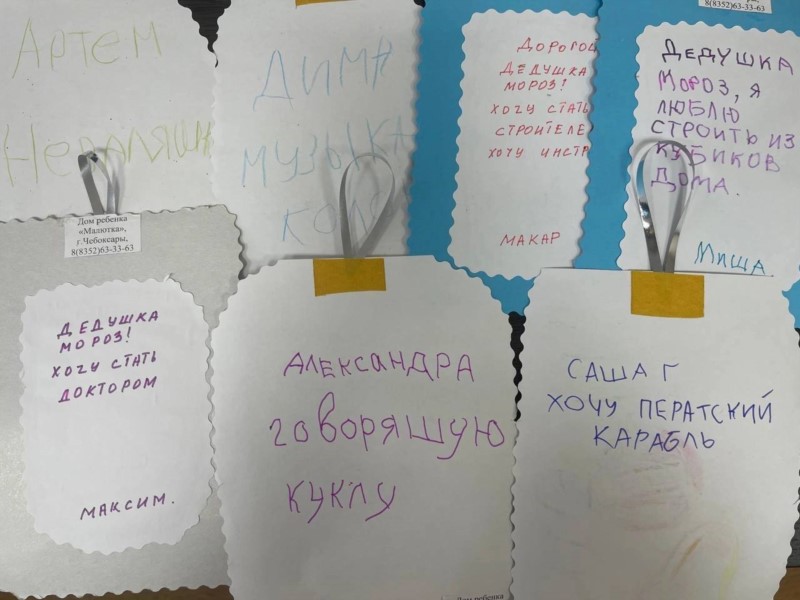 Артем
Неваляшк
ДИМА
МУЗЫКА
КОЛ
ДОРОГО
ДЕДУШКА
МОРОЗ!
ХОЧУ СТАТЬ
СТРОИТЕЛЕ
ХОЧУ ИНСТР
МАКАР
8(8352)63-33-63
ДЕДУШКА
МОРОЗ, Я
ЛЮБЛЮ
СТРОИТЬ ИЗ
КУБИКОВ
ДОМА.
МИША.
Дом ребенка
«Малютка»,
г.Чебоксары,
8(8352)63-33-63
ДЕДУШКА
МОРОЗ!
ХОЧУ СТАТЬ
ДОКТОРОМ
МАКСИМ.
АЛЕКСАНДРА
говорящую
куклу
САША Г
ХОЧУ ПЕРАТСКИЙ
КАРАБЛЬ
Дом ребенка